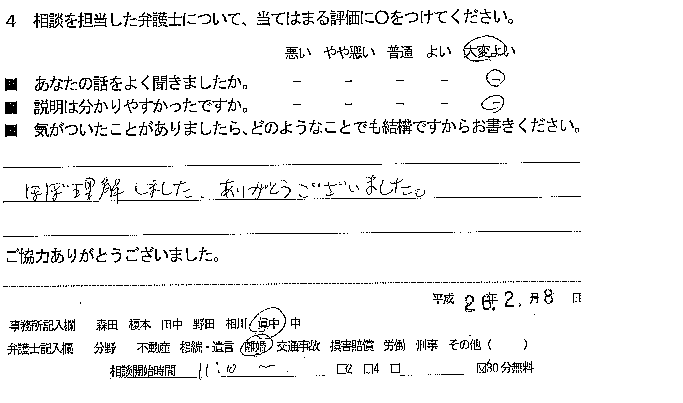 4 相談を担当した弁護士について、当てはまる評価に〇をつけてください。
悪い やや悪い 普通 よい 大変よい
■ あなたの話をよく聞きましたか。 － － － － －
■ 説明は分かりやすかったですか。 － － － － －
■ 気がついたことがありましたら、どのようなことでも結構ですからお書きください。
ほぼ理解しました、ありがとうございました。
ご協力ありがとうございました。
平成 26年2月8日
事務所記入欄 森田 榎本 田中 野田 相川 中
弁護士記入欄 分野 不動産 相続・遺言 離婚 交通事故 損害賠償 労働 刑事 その他（ ）
相談開始時間 11:10 ～ □2 □4 □ ☑30分無料